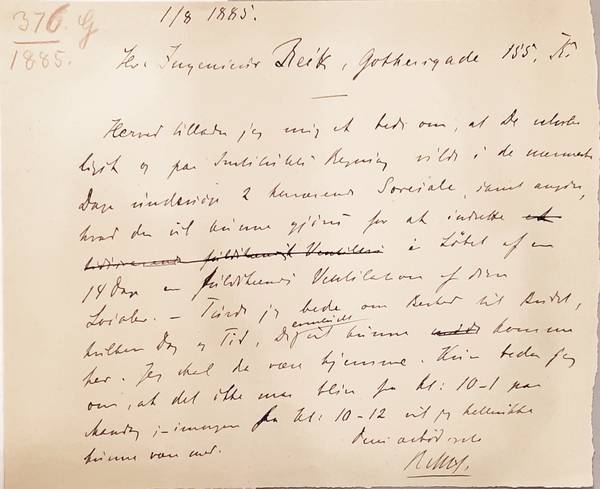 376. G
1885.
1/8 1885.
Hr. Ingenieur Reck, Gothersgade 155. K.
Herved tillader jeg mig at bede om, at De
og paa Instituttets Regning vilde i de nærmeste
Dage undersøge 2 herværende Loreiale, samt angive,
hvad der vil kunne gjøres for at indrette et
fuldstændigt Ventilation i Løbet af en
14 Dage en fuldstændig Ventilation af disse
Lokaler. — Turde jeg bede om Besked til Budet,
hvilken Dag og Tid, De omtrent vil kunne komme
her. Jeg skal da være hjemme. Kun beder jeg
om, at det ikke maa blive fra Kl: 10-1 paa
Mandag; i-morgen fra Kl: 10-12 vil jeg hellerikke
kunne være med.
Deres ærbødigste